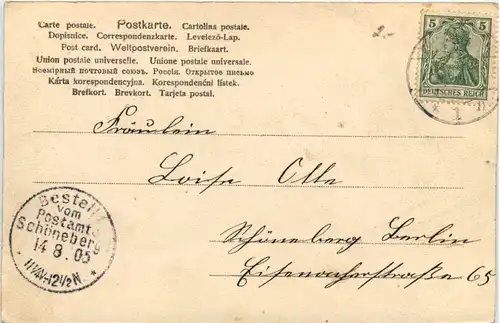 Carte postale. Postkarte. Cartolina postale.
Dopisnice. Correspondenzkarte. Levelező-Lap.
Post card. Weltpostverein. Briefkaart.
Union postale universelle. Unione postale universale.
Всемірный почтовый союзъ. Россія. Открытое письмо
Kárta korespondencyjna. Korespondenční lístek.
Brefkort. Brevkort. Tarjeta postal.
5 5
DEUTSCHES REICH
* 1 n
Fräulein
Loise Otte
Schöneberg Berlin
Eisenacherstraße 65
Bestellt
vom
Postamte
Schöneberg
14 8. 05
* 11¼-12½N *